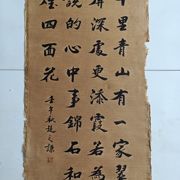 千里青山有一家翠
屏深處更添霞若為
說的心中事錦石和
煙四面花
壬午秋趙之謙